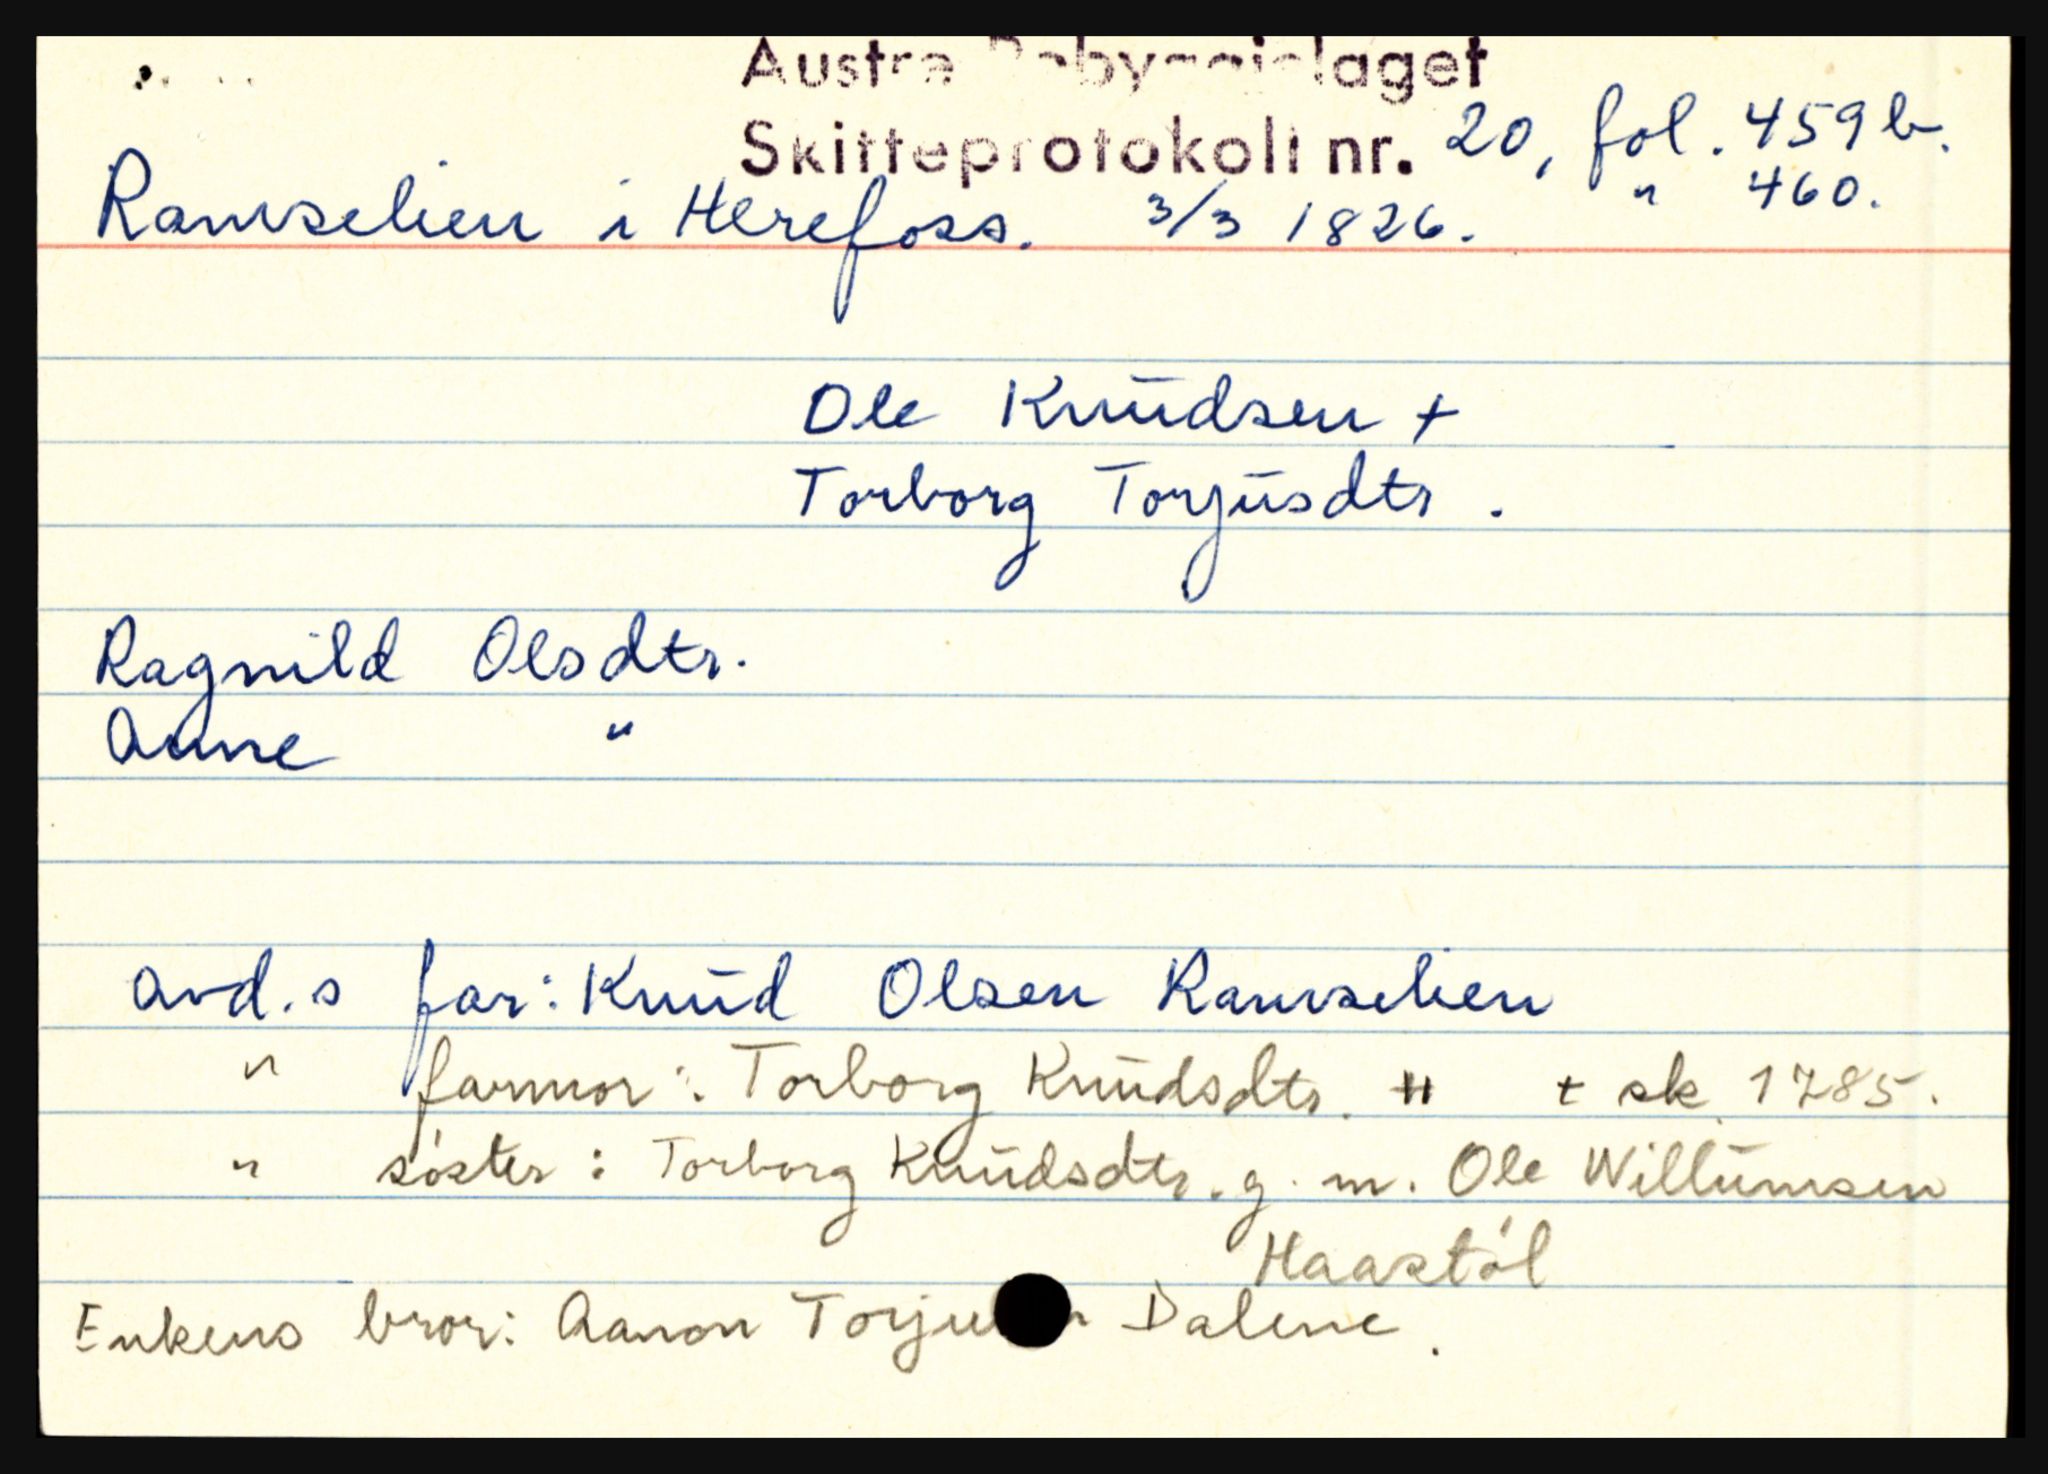 Austre Råbyggjelaget
Skifteprotokoll nr. 20, fol. 459 b.
" 460.
Ramselien i Herefoss. 3/3 1826.
Ole Knudsen +
Torborg Torjusdtr.
Ragnild Olsdtr.
Anne "
avd.s far: Knud Olsen Ramselien
" farmor: Torborg Knudsdtr. + sk. 1785.
" søster: Torborg Knudsdtr. g. m. Ole Willumsen
Haastøl
Enkens bror: Aanon Dalene.